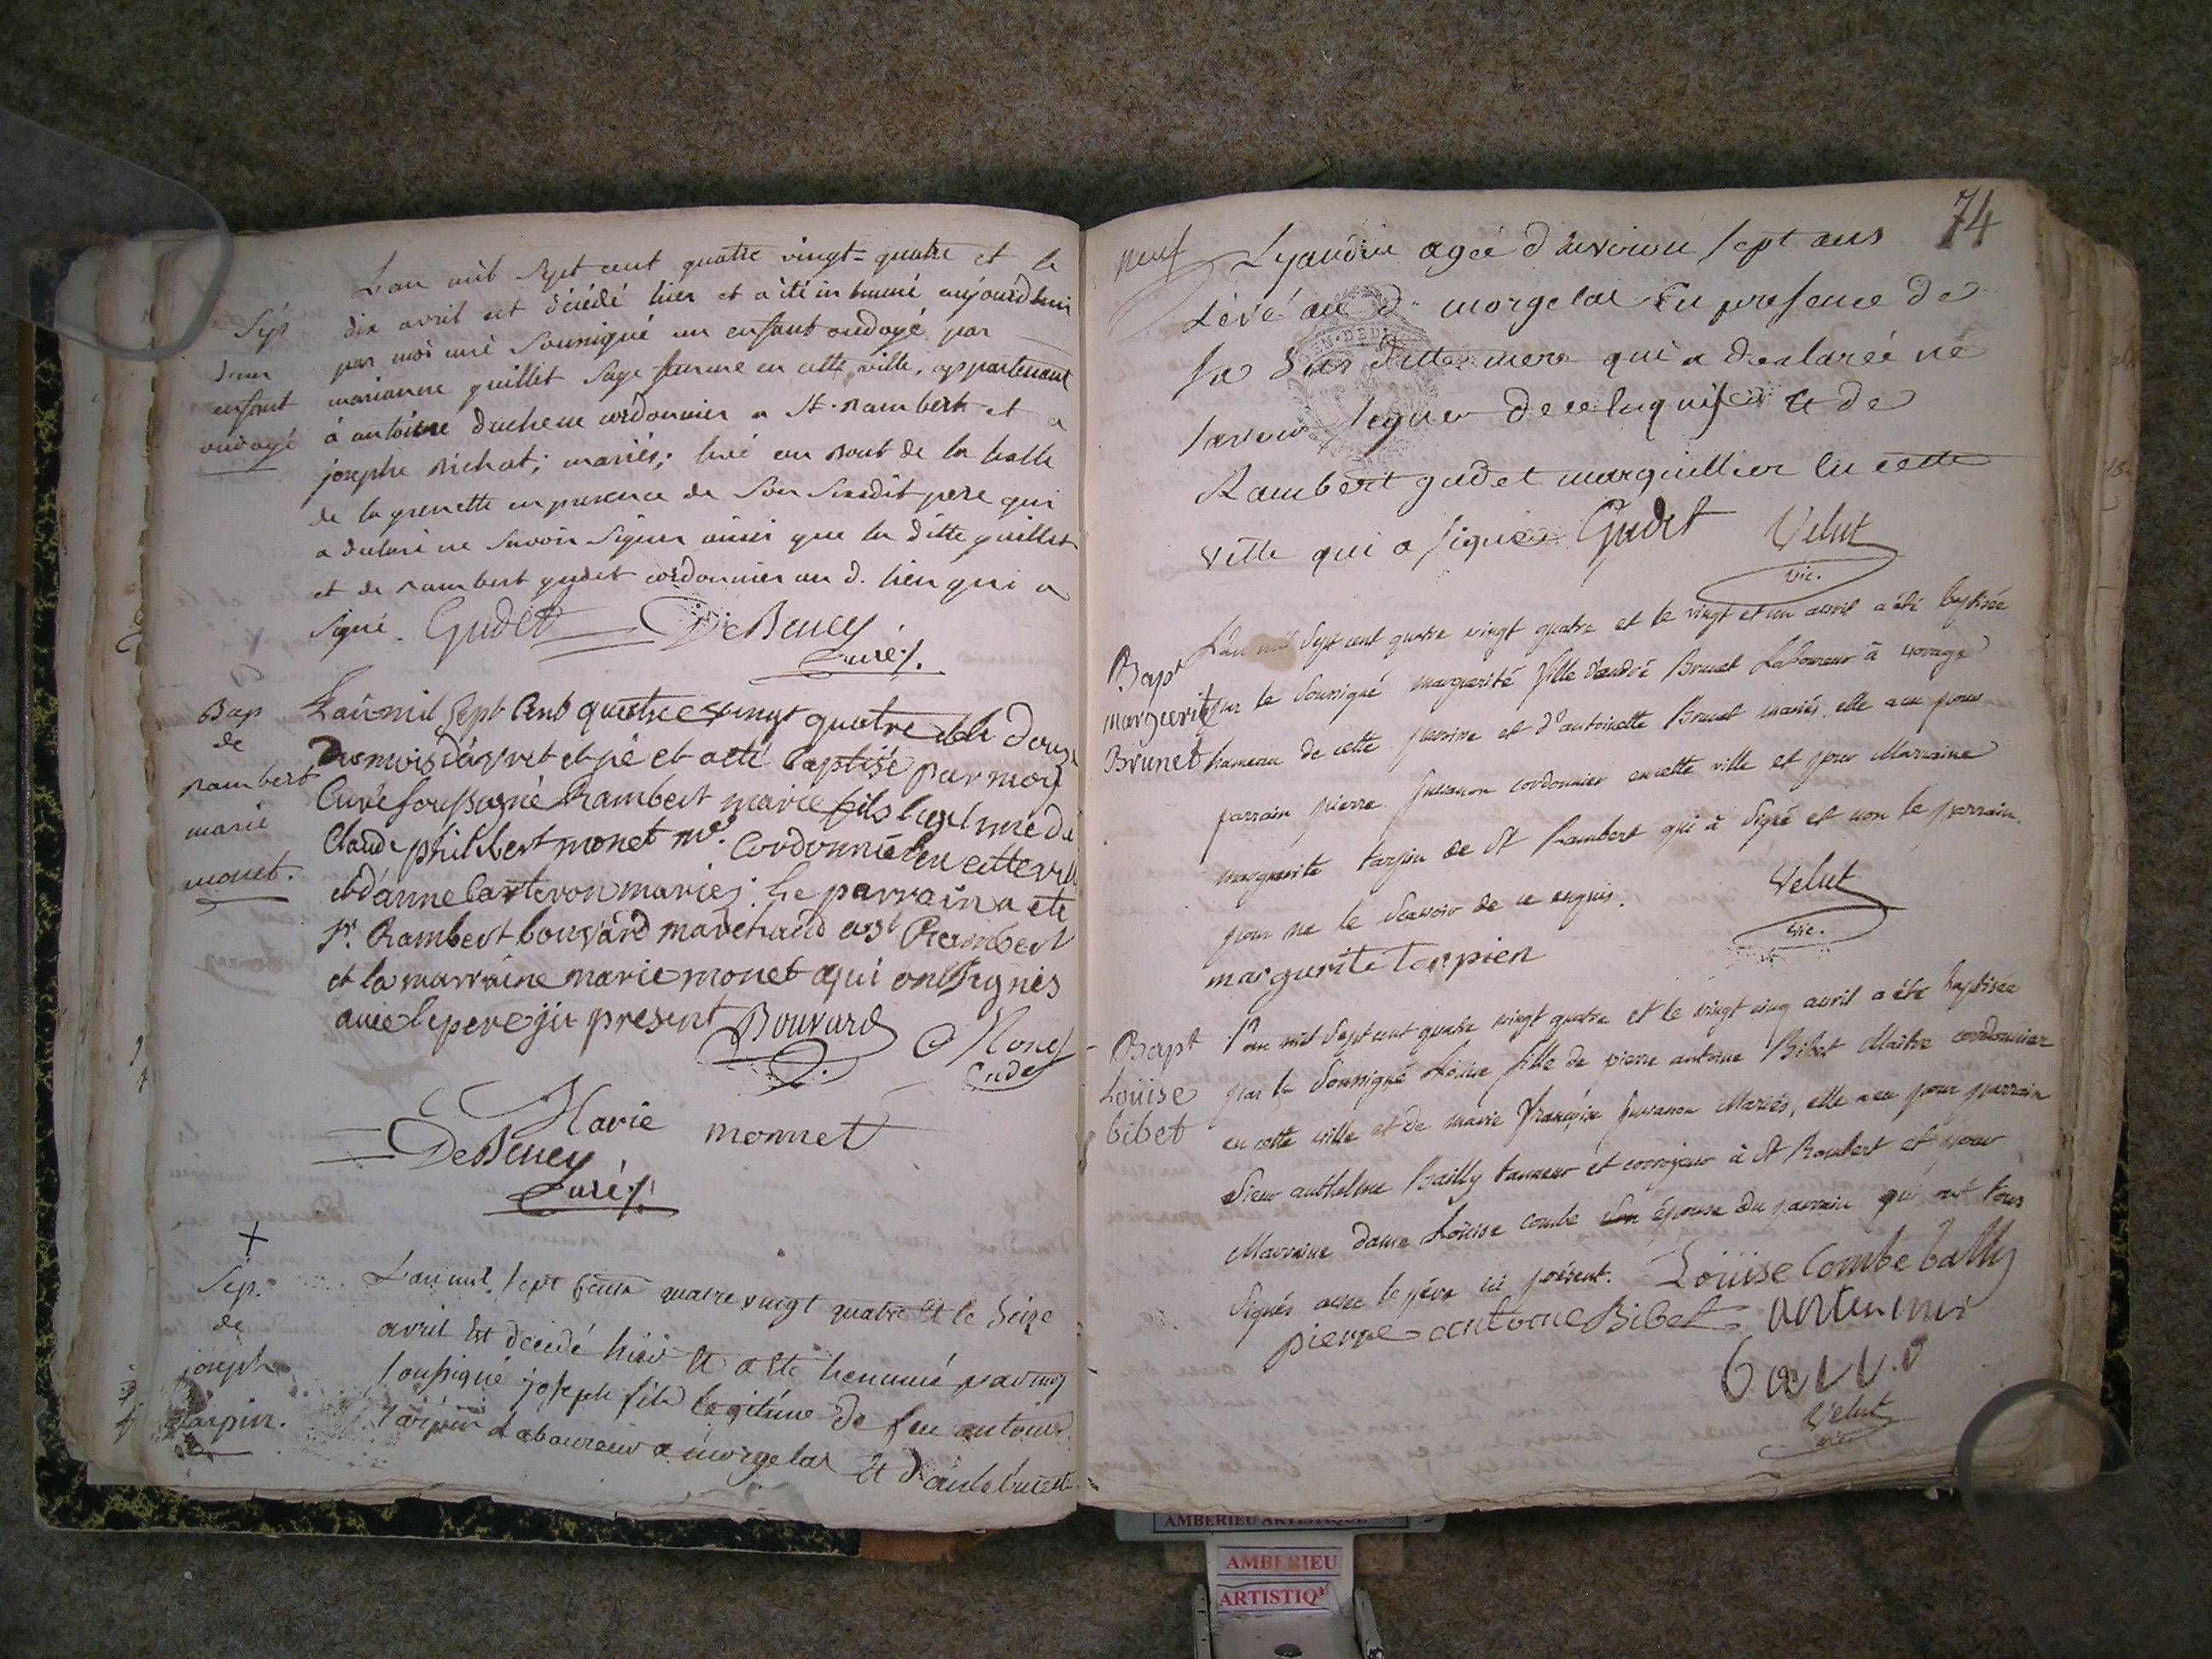 Sep
d'un
enfant
ondoyé
L'an mil sept cent quatre vingt=quatre et le
dix avril est décédé hier et a été inhumé aujourd'hui
par moi curé soussigné un enfant ondoyé par
marianne guillet sage femme en cette ville, appartenant
à antoine duchene cordonnier a St. rambert et a
josephe Richat; mariés; levé au bout de la halle
de la grenette en presence de son susdit pere qui
a declaré ne savoir signer ainsi que la ditte guillet
et de rambert gudet cordonnier au d. lieu qui a
signé. Gudet DeBeney
Curé.
Bap
de
rambert
marie
monet.
L'an mil sept cent quatre vingt quatre et le douze
du mois d'avril est né et a eté baptisé par moy
Curé soussigné Rambert marie fils legitime de
Claude philibert monet me. Cordonnié en cette ville
et d'anne Carteron mariés: le parrain a ete
sr. Rambert bouvard marchand a st Rambert
et la marraine marie monet qui ont signés
avec le pere ici present Bouvard
Marie monnet
DeBeney
Curé.
+
Sep.
de
joseph
tarpin.
L'an mil sept cent quatre vingt quatre et le seize
avril est decedé hier et a ete inhumé par moy
soussigné joseph fils legitime de feu antoine
tarpin Laboureur a morgelas et d'
74
neuf Lyaudin agée d'environ sept ans
Levé au d. morgelas en presence de
sa sus ditte mere qui a declarée ne
savoir signer de ce enquise et de
Rambert gudet marguillier en cette
ville qui a signé Gudet Velut
vic.
Bapt
marguerite
Brunet
L'an mil sept cent quatre vingt quatre et le vingt et un avril a été baptisée
par le soussigné marguerite fille d'andré Brunet Laboureur à
hameau de cette paroisse et d'antoinette Brunet mariés. elle a eu pour
parrain pierre juvanon cordonnier en cette ville et pour Marraine
marguerite tarpin de St Rambert qui à signé et non le parrain
pour ne le scavoir de ce enquis. Velut
vic.
marguerite Tarpien
Bapt
Loüise
bibet
l'an mil sept cent quatre vingt quatre et le vingt cinq avril a été baptisée
par le soussigné Loüise fille de pierre antoine Bibet Maitre cordonnier
en cette ville et de marie françoise juvanon Mariés, elle a eu pour parrain
Sieur anthelme Bailly tanneur et corroyeur à St Rambert et pour
Marraine dame Loüise combe son épouse du parrain qui ont tous
signés avec le père ici présent. Loüise Combe bally
pierre antoine Bibet
Velut
vic
AMBERIEU ARTISTIQUE
AMBERIEU
ARTISTIQ